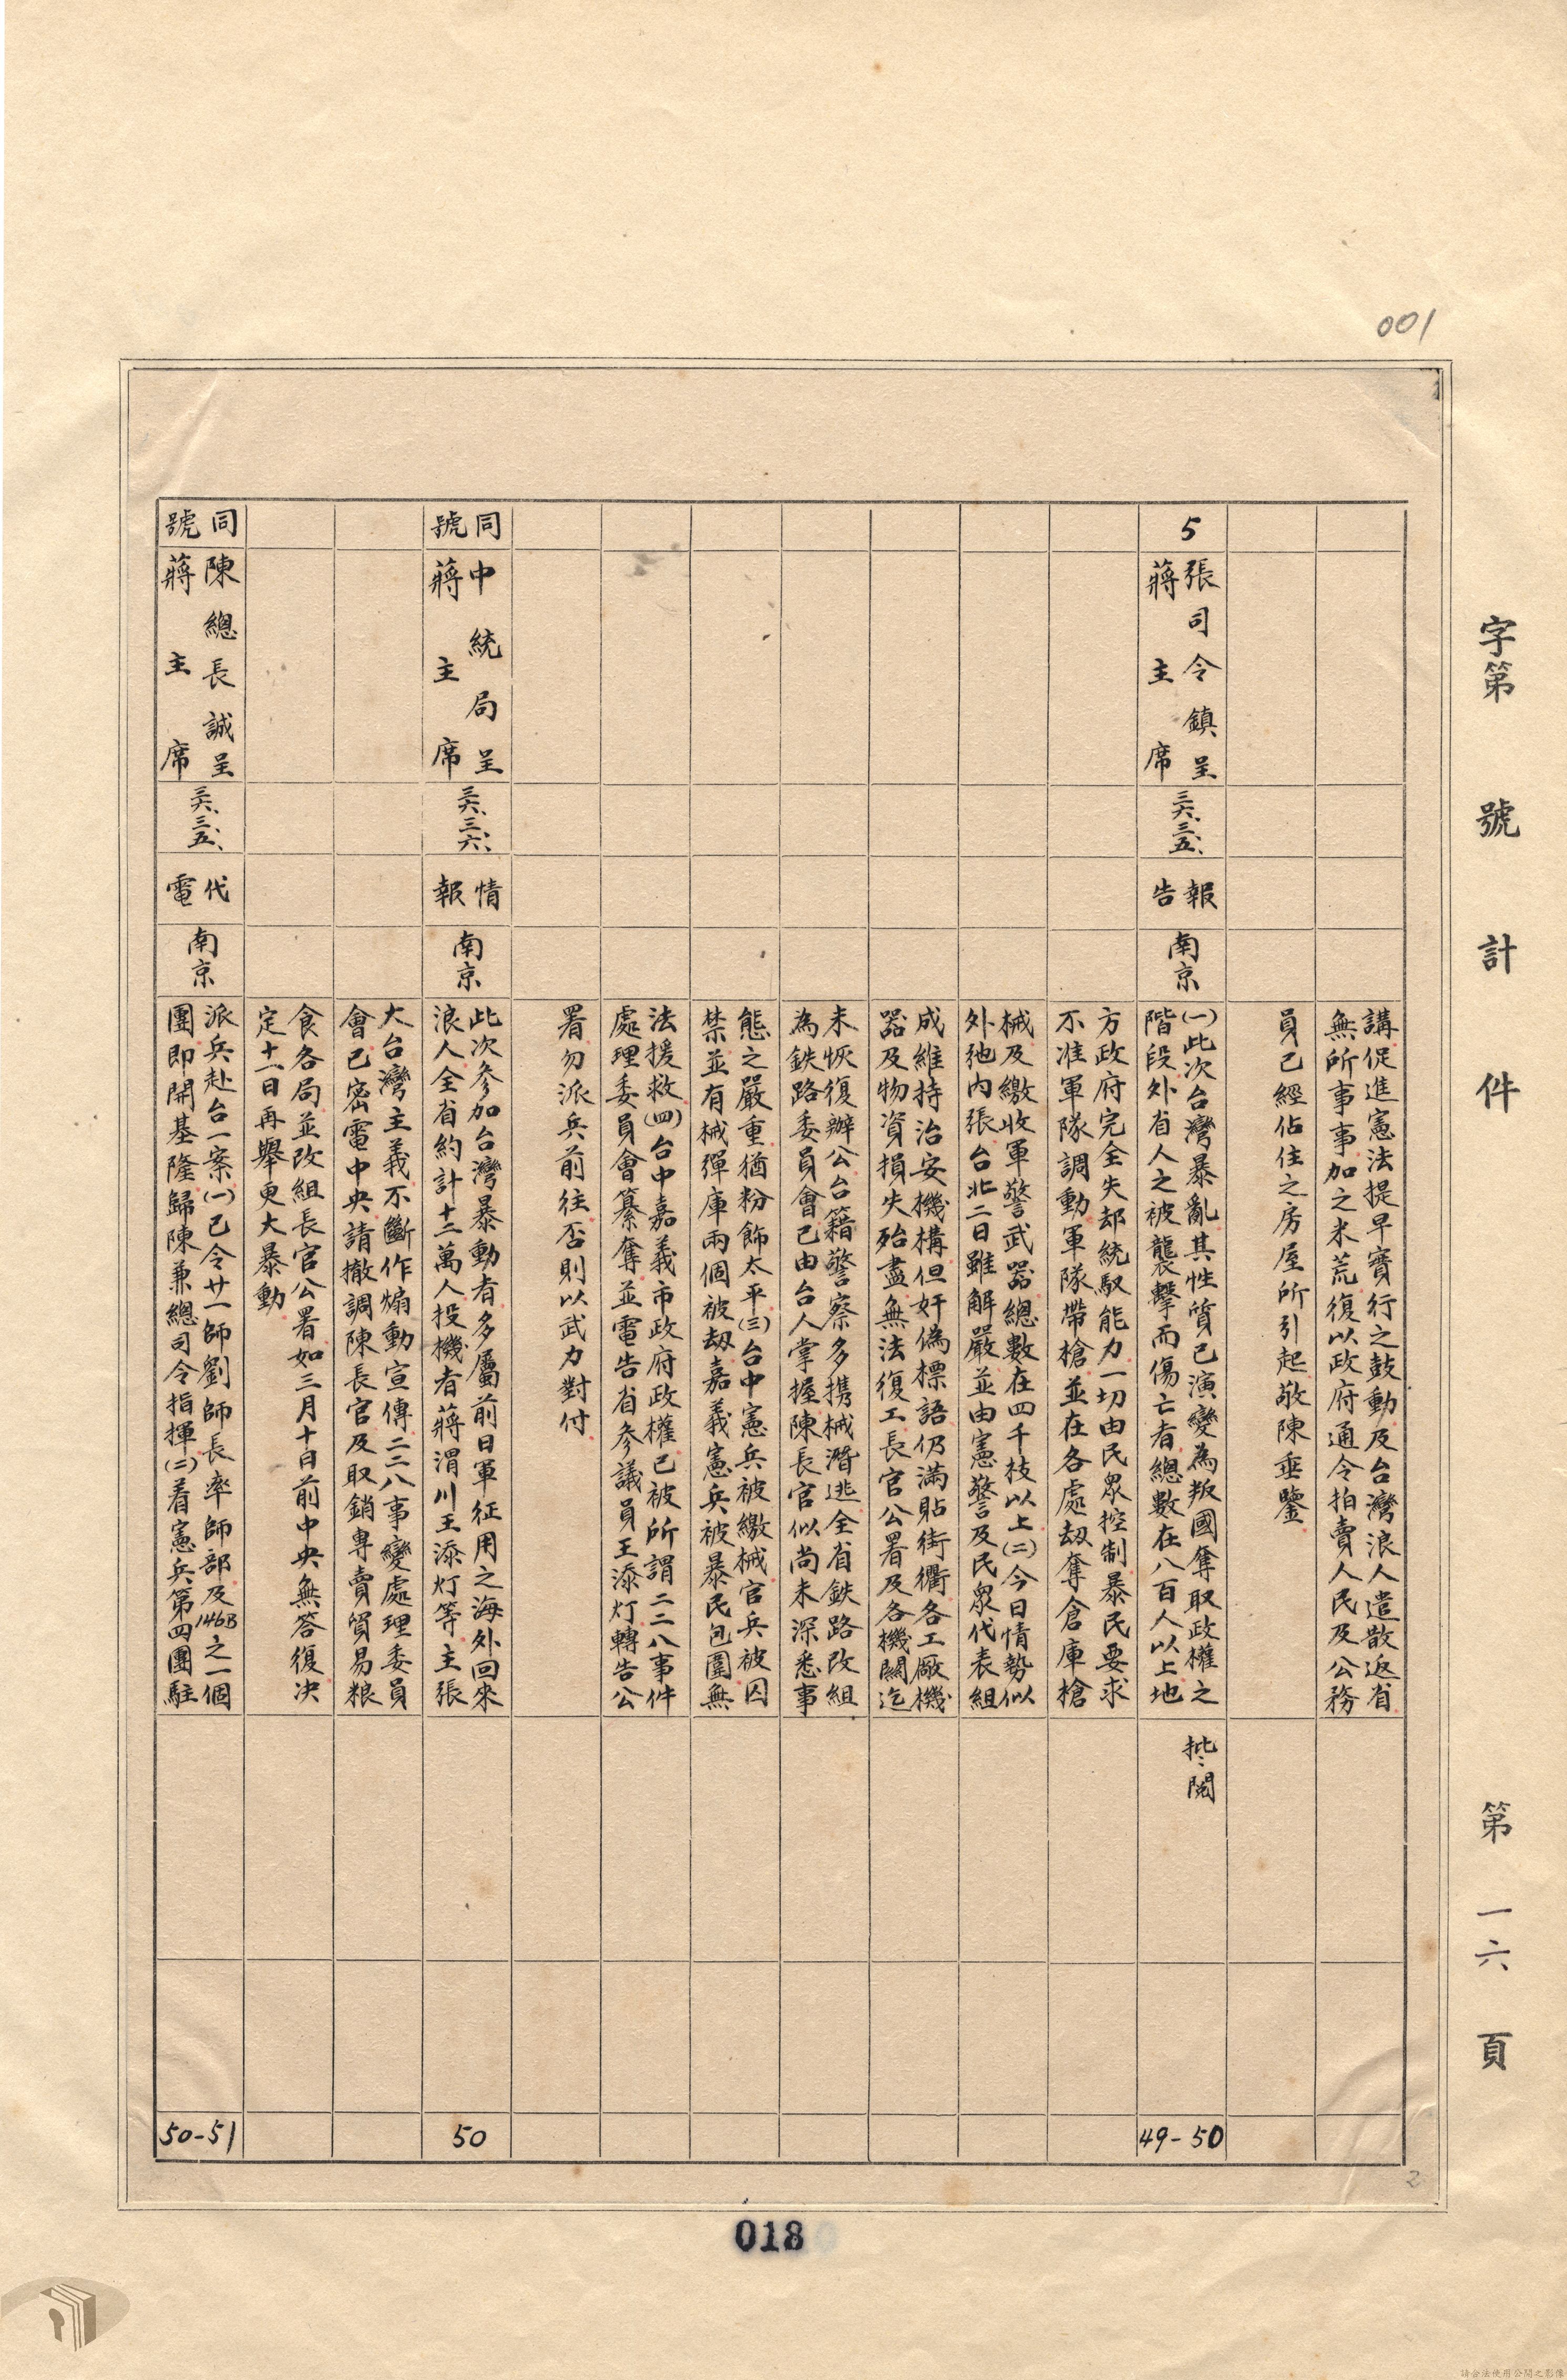 001
字第 號 計 件 第一六頁
講促進憲法提早實行之鼓動及台灣浪人遣散返省
無所事事加之米荒復以政府通令拍賣人民及公務
員已經佔住之房屋所引起敬陳垂鑒
5
張司令鎮呈
蔣主席
三六、三、五、
報告
南京
(一)此次台灣暴亂其性質已演變為叛國奪取政權之
階段外省人之被襲擊而傷亡者總數在八百人以上地
方政府完全失却統馭能力一切由民眾控制暴民要求
不准軍隊調動軍隊帶槍並在各處刼奪倉庫槍
械及繳收軍警武器總數在四千枝以上(二)今日情勢似
外弛內張台北二日雖解嚴並由憲警及民眾代表組
成維持治安機構但奸偽標語仍滿貼街衢各工廠機
器及物資損失殆盡無法復工長官公署及各機關迄
未恢復辦公台籍警察多携械潛逃全省鉄路改組
為鉄路委員會已由台人掌握陳長官似尚未深悉事
態之嚴重猶粉飾太平(三)台中憲兵被繳械官兵被囚
禁並有械彈庫兩個被刼嘉義憲兵被暴民包圍無
法援救(四)台中嘉義市政府政權已被所謂二二八事件
處理委員會纂奪並電告省參議員王添灯轉告公
署勿派兵前往否則以武力對付
批：閱
49-50
同號
中統局呈
蔣主席
三六、三、六、
情報
南京
此次參加台灣暴動者多屬前日軍征用之海外回來
浪人全省約計十二萬人投機者蔣渭川王添灯等主張
大台灣主義不斷作煽動宣傳二二八事變處理委員
會已密電中央請撤調陳長官及取銷專賣貿易粮
食各局並改組長官公署如三月十日前中央無答復決
定十一日再舉更大暴動
50
同號
陳總長誠呈
蔣主席
三六、三、五、
代電
南京
派兵赴台一案(一)已令廿一師劉師長率師部及146B之一個
團即開基隆歸陳兼總司令指揮(二)着憲兵第四團駐
50-51
2
018
請合法使用公開之影像